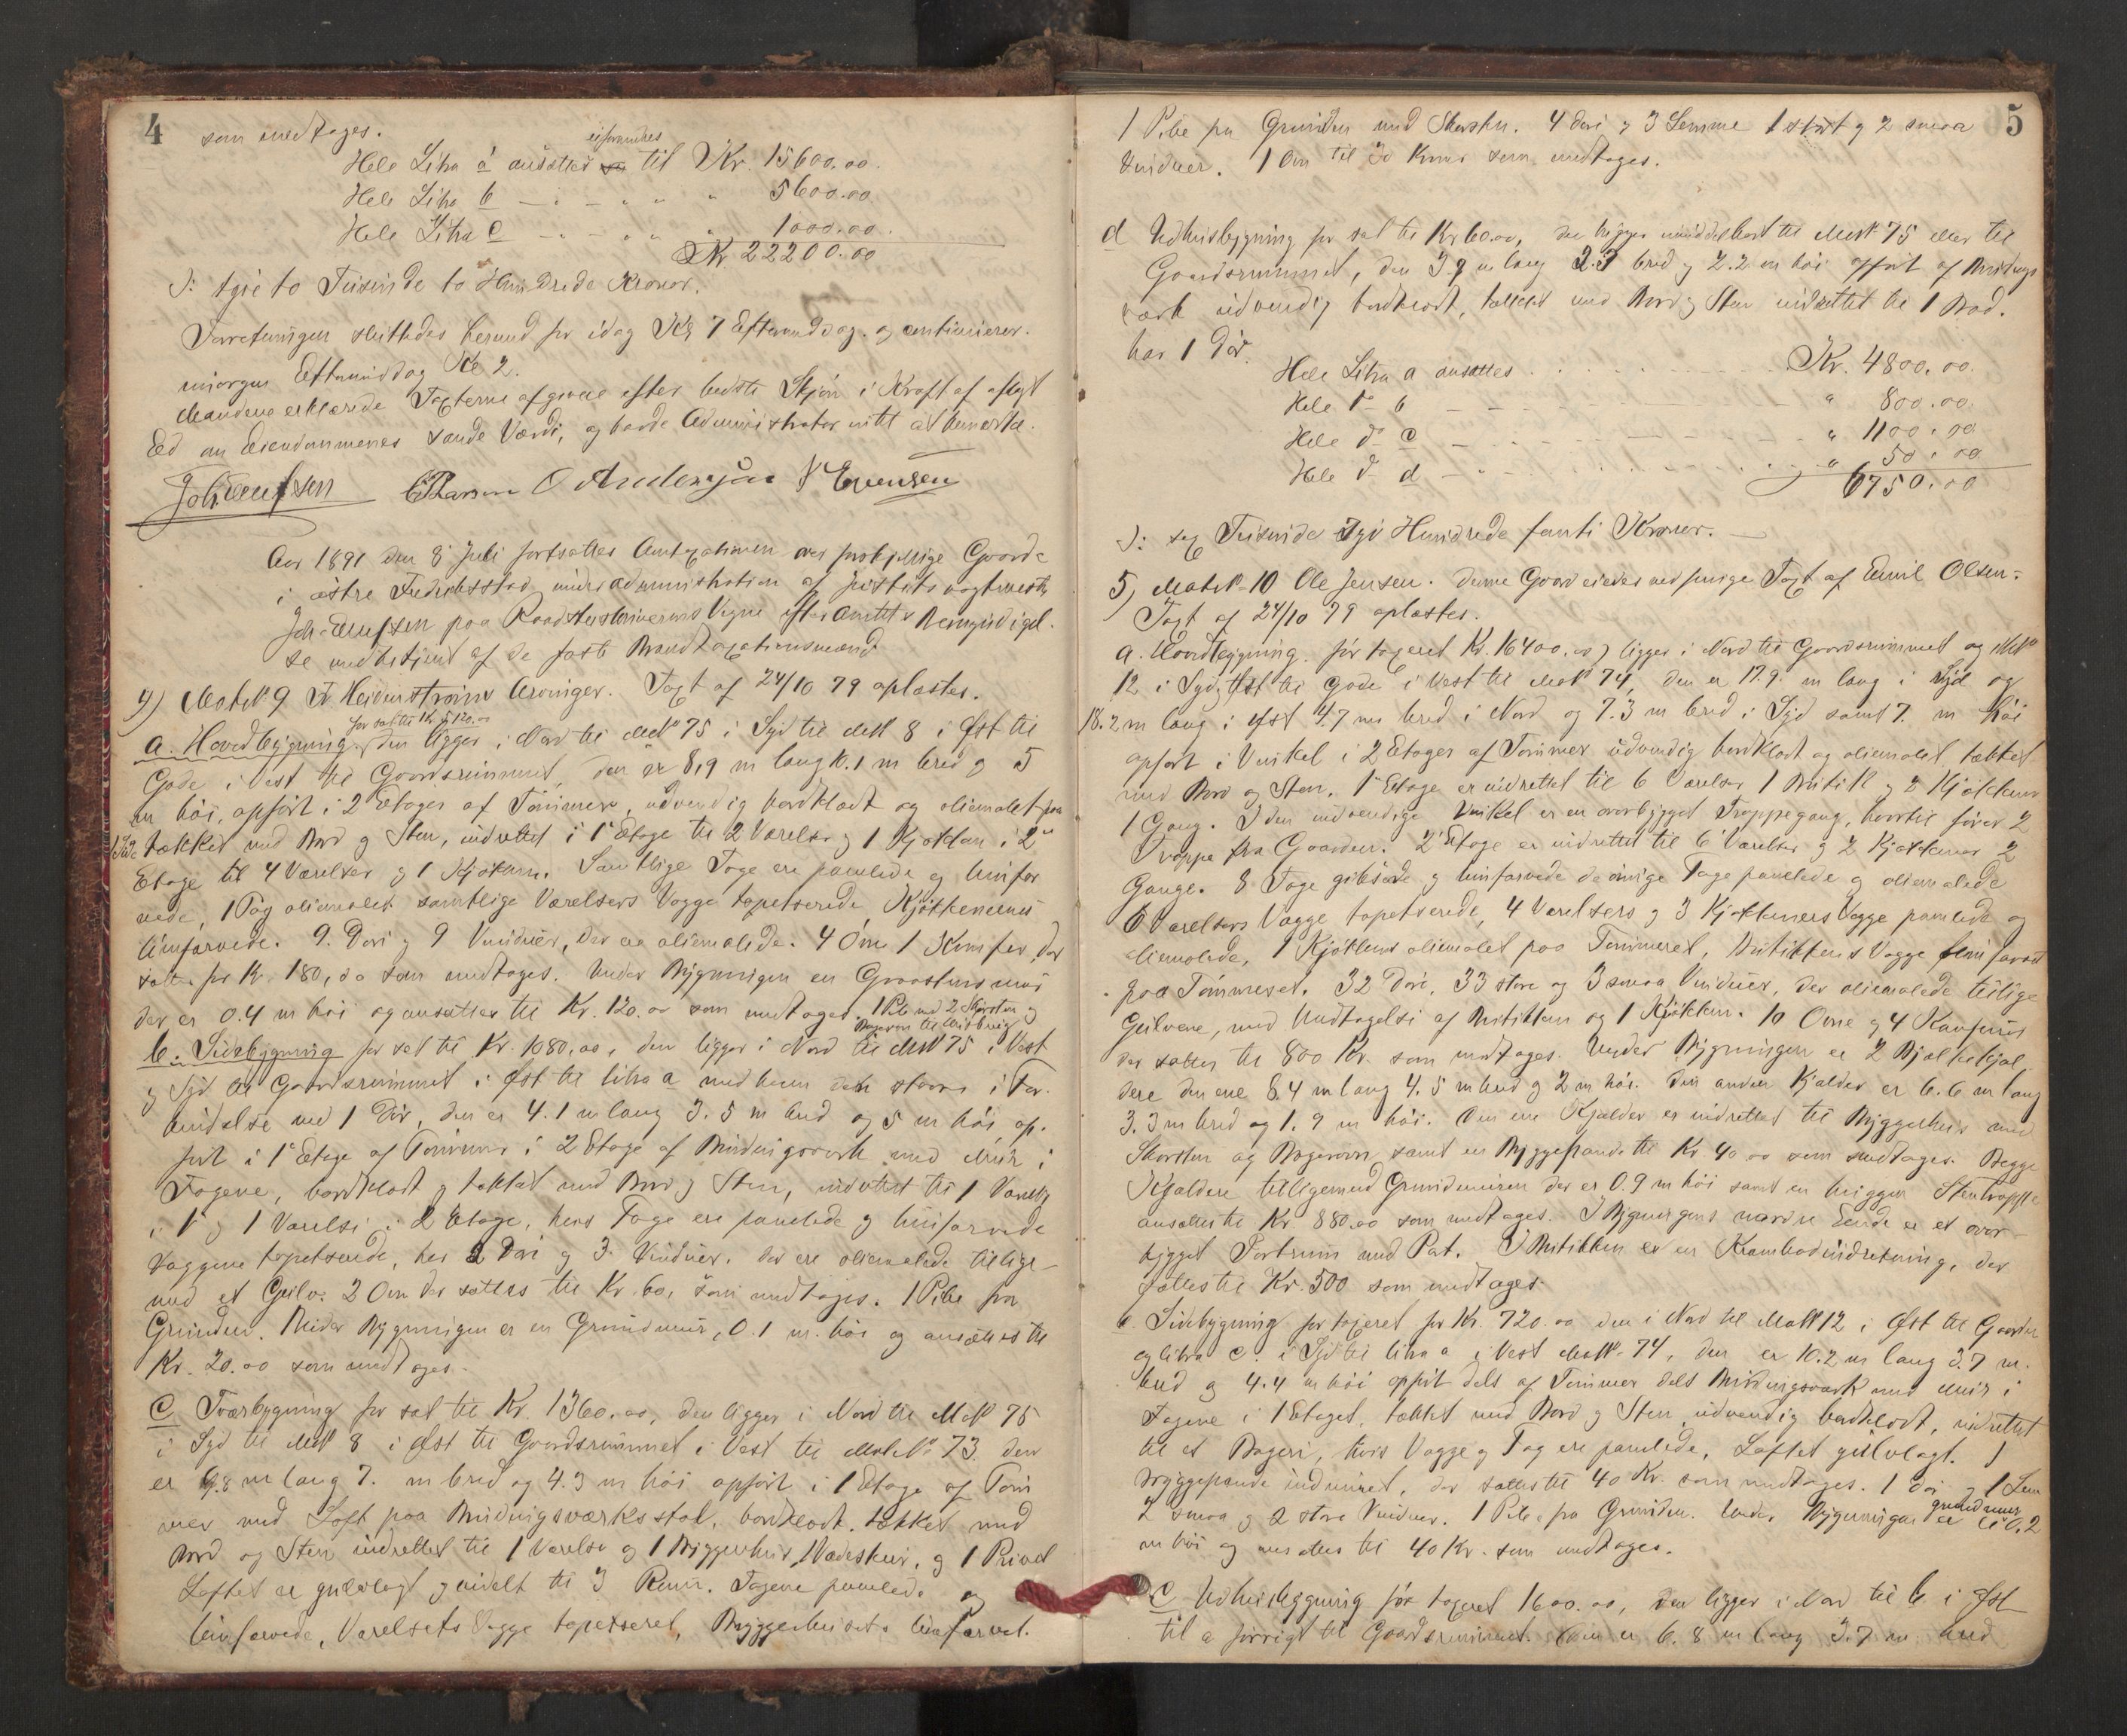 4
som medtages.
eiforandres
Hele Litra a ansættes til Kr. 15600.00.
Hele Litra b - " - " " " 5600.00
Hele Litra c - " - " " " 1000.00.
Kr 22200.00
ɔ: tyve to Tusinde to Hundrede Kroner.
Forretningen sluttedes hermed for idag Kl 7 Eftermiddag. og continuerer
imorgen Eftermiddag Kl 2.
Mændene erklærede Taxterne afgivne efter bedste Skjøn i Kraft af aflagt
Ed om Eiendommenes sande Værdi, og havde Administrator intet at bemærke.
O Andersen Evensen
Aar 1891 den 8 Juli fortsattes Omtaxationen over forskjellige Gaarde
i østre Frederiksstad under administration af Justitsvagtmester
paa Raadstueskriverens Vegne efter Amtets Bemyndigel-
se med betjent af de faste Brandtaxationsmænd
4) Matr No 9 Heidenstrøms Arvinger. Taxt af 24/10 79 oplæstes.
før sat til Kr 5120.-
a. Hovedbygning. den ligger i Nord til MNo 75 i Syd til MNo 8 i Øst til
Gade, i Vest til Gaardsrummet, den er 8,9 m lang 10.1 m bred og 5
m høi, opført i 2 Etager af Tømmer, udvendig bordklædt og oliemalet paa
1 Side tækket med Bord og Sten, indrettet i 1e Etage til 2 Værelser og 1 Kjøkken i 2en
Etage til 4 Værelser og 1 Kjøkken. Samtlige Tage ere panelede og limfar
vede, 1 Tag oliemalet samtlige Værelsers Vægge tapetserede, Kjøkkenernes
limfarvede. 9. Døre og 9 Vinduer, der ere oliemalede. 4 Ovne 1 Komfur, der
sættes for Kr. 180,00 som medtages. Under Bygningen en Graastensmur
der er 0.4 m høi og ansættes til Kr. 120.00 som medtages. 1 Pibe med 2 Skorsten og
Bagerovn til
b. Sidebygning før sat til Kr. 1080,00, den ligger i Nord til MNo 75 i Vest
og Syd til Gaardsrummet i Øst til litra a med hvem den staar i For-
bindelse med 1 Dør, den er 4.1 m lang 3.5 m bred og 5 m høi, op-
ført i 1e Etage af Tømmer i 2 Etage af Bindingsverk med Mur i
Fagene, bordklædt og tækket med Bord og Sten, indrettet til 1 Værelse
i 1e og 1 Værelse i 2 Etage, hvis Tage ere panelede og limfarvede
Væggene tapetserede, har 2 Døre og 3 Vinduer, der ere oliemalede tillige-
med et Gulv. 2 Ovne der sættes til Kr. 60, som medtages. 1 Pibe fra
Grunden. Under Bygningen er en Grundmur, 0.1 m. høi og ansættes til
Kr. 20.00 som medtages.
c Tværbygning før sat til Kr. 1360.00, den ligger i Nord til MNo 75
i Syd til MNo 8 i Øst til Gaardsrummet i Vest til MatrNo 73. den
er 9.8 m lang 7. m bred og 4.3 m høi opført i 1 Etage af Tøm
mer med Loft paa Bindingsværksstol, bordklædt. tækket med
Bord og Sten indrettet til 1 Værelse og 1 Bryggerhus, 1 Vedeskur, og 1 Privet
Loftet er gulvlagt og indelt til 3 Rum. Tagene panelede og
limfarvede, Værelsets Vægge tapetseret, Bryggerhusets limfarvet.
5
1 Pibe fra Grunden med Skorsten. 4 Døre og 3 Lemme 1 stort og 2 smaa
Vinduer. 1 Ovn til 20 Kroner som medtages.
d Udhusbygning før sat til Kr 60.00, den ligger umiddelbart til MNo 75 eller til
Gaardsrummet, den 3.9 m lang 2.3 bred og 2.2 m høi opført af Bindings
værk udvendig bordklædt, tækket med Bord og Sten indrettet til 1 Bod.
har 1 Dør.
Hele Litra a ansættes . . . . . . . . Kr. 4800.00.
Hele do b - - - - - " 800.00.
Hele do c - - - - - " 1100.00
Hele do d - - - - - " 50.00
6750.00
ɔ: sex Tusinde syv Hundrede femti Kroner.
5) MatrNo 10 Ole Jensen. denne Gaard eiedes ved forrige Taxt af Emil Olsen.
Taxt af 24/10 79 oplæstes.
a. Hovedbygning. før taxeret Kr. 16400.00 ligger i Nord til Gaardsrummet og MNo
12 i Syd, Øst til Gade i Vest til MNo 74, den er 17.9. m lang i Syd og
18.2 m lang i Øst 7.7 m bred i Nord og 7.3 m bred i Syd samt 7. m høi
opført i Vinkel i 2 Etager af Tømmer, udvendig bordklædt og oliemalet, tækket
med Bord og Sten. 1e Etage er indrettet til 6 Værelser 1 Butik og 2 Kjøkkener
1 Gang. I den indvendige Vinkel er en overbygget Trappegang, hvortil fører 2
Trappe fra Gaarden. 2 Etage er indrettet til 6 Værelser og 2 Kjøkkener 2
Gange. 8 Tage gibsede og limfarvede de øvrige Tage panelede og oliemalede
6 Værelsers Vægge tapetserede, 4 Værelsers og 3 Kjøkkeners Vægge panelede og
oliemalede, 1 Kjøkkens oliemalet paa Tømmeret, Butikkens Vægge limfarvet
paa Tømmeret. 32 Døre, 33 store og 3 smaa Vinduer, der oliemalede tillige
Gulvene, med Undtagelse af Butikken og 1 Kjøkken. 10 Ovne og 4 Komfurer
der sættes til 800 Kr. som medtages. Under Bygningen er 2 Bjælkekjæl-
dere den ene 8.4 m lang 4.5 m bred og 2 m høi. den anden Kjælder er 6.6 m lang
3.3 m bred og 1.9 m høi. Den ene Kjælder er indrettet til Bryggerhus med
Skorsten og Bagerovn samt en Bryggepande til Kr 40.00 som medtages. Begge
Kjældere tilligemed Grundmuren der er 0.9 m høi samt en huggen Stentrappe
ansættes til Kr. 880.00 som medtages. I Bygningens nordre Ende er et over-
bygget Portrum med Port. I Butikken er en Krambodindretning, der
sættes til Kr. 500 som medtages.
b. Sidebygning før taxeret for Kr. 720.00 den i Nord til MatNo 12 i Øst til Gaarden
og litra c. i Syd til litra a i Vest MatNo 74, den er 10.2 m lang 3.7 m.
bred og 4.4 m høi opført dels af Tømmer dels Bindingsværk med Mur i
Fagene i 1 Etaget, tækket med Bord og Sten udvendig bordklædt, indrettet
til et Bageri, hvis Vægge og Tag ere panelede, Loftet gulvlagt. 1
Bryggepande indmuret, der sættes til 40 Kr. som medtages. 1 Dør og 1 Lem
2 smaa og 2 store Vinduer. 1 Pibe fra Grunden. Under Bygningen er grundmur 0,2
m høi og ansættes til 40 Kr. som medtages.
c Udhusbygning før taxeret 1600.00, den ligger i Nord til b i Øst
til a forrigt til Gaardsrummet. Den er 6.8 m lang 3.7 m bred